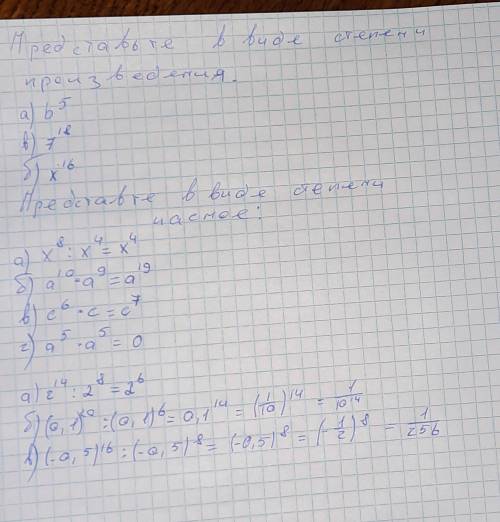 Представьте в виде степени
произведения.
а) b⁵
в) 7¹⁸
б) x¹⁶
Представте в виде степени
часное:
а) x⁸ : x⁴ = x⁴
б) a¹⁰ · a⁹ = a¹⁹
в) c⁶ · c = c⁷
г) a⁵ · a⁵ = 0
а) 2¹⁴ : 2⁸ = 2⁶
б) (0,1)²⁰ : (0,1)⁶ = 0,1¹⁴ = (1/10)¹⁴ = 1/10¹⁴
в) (-0,5)¹⁶ : (-0,5)⁸ = (-0,5)⁸ = (-1/2)⁸ = 1/256